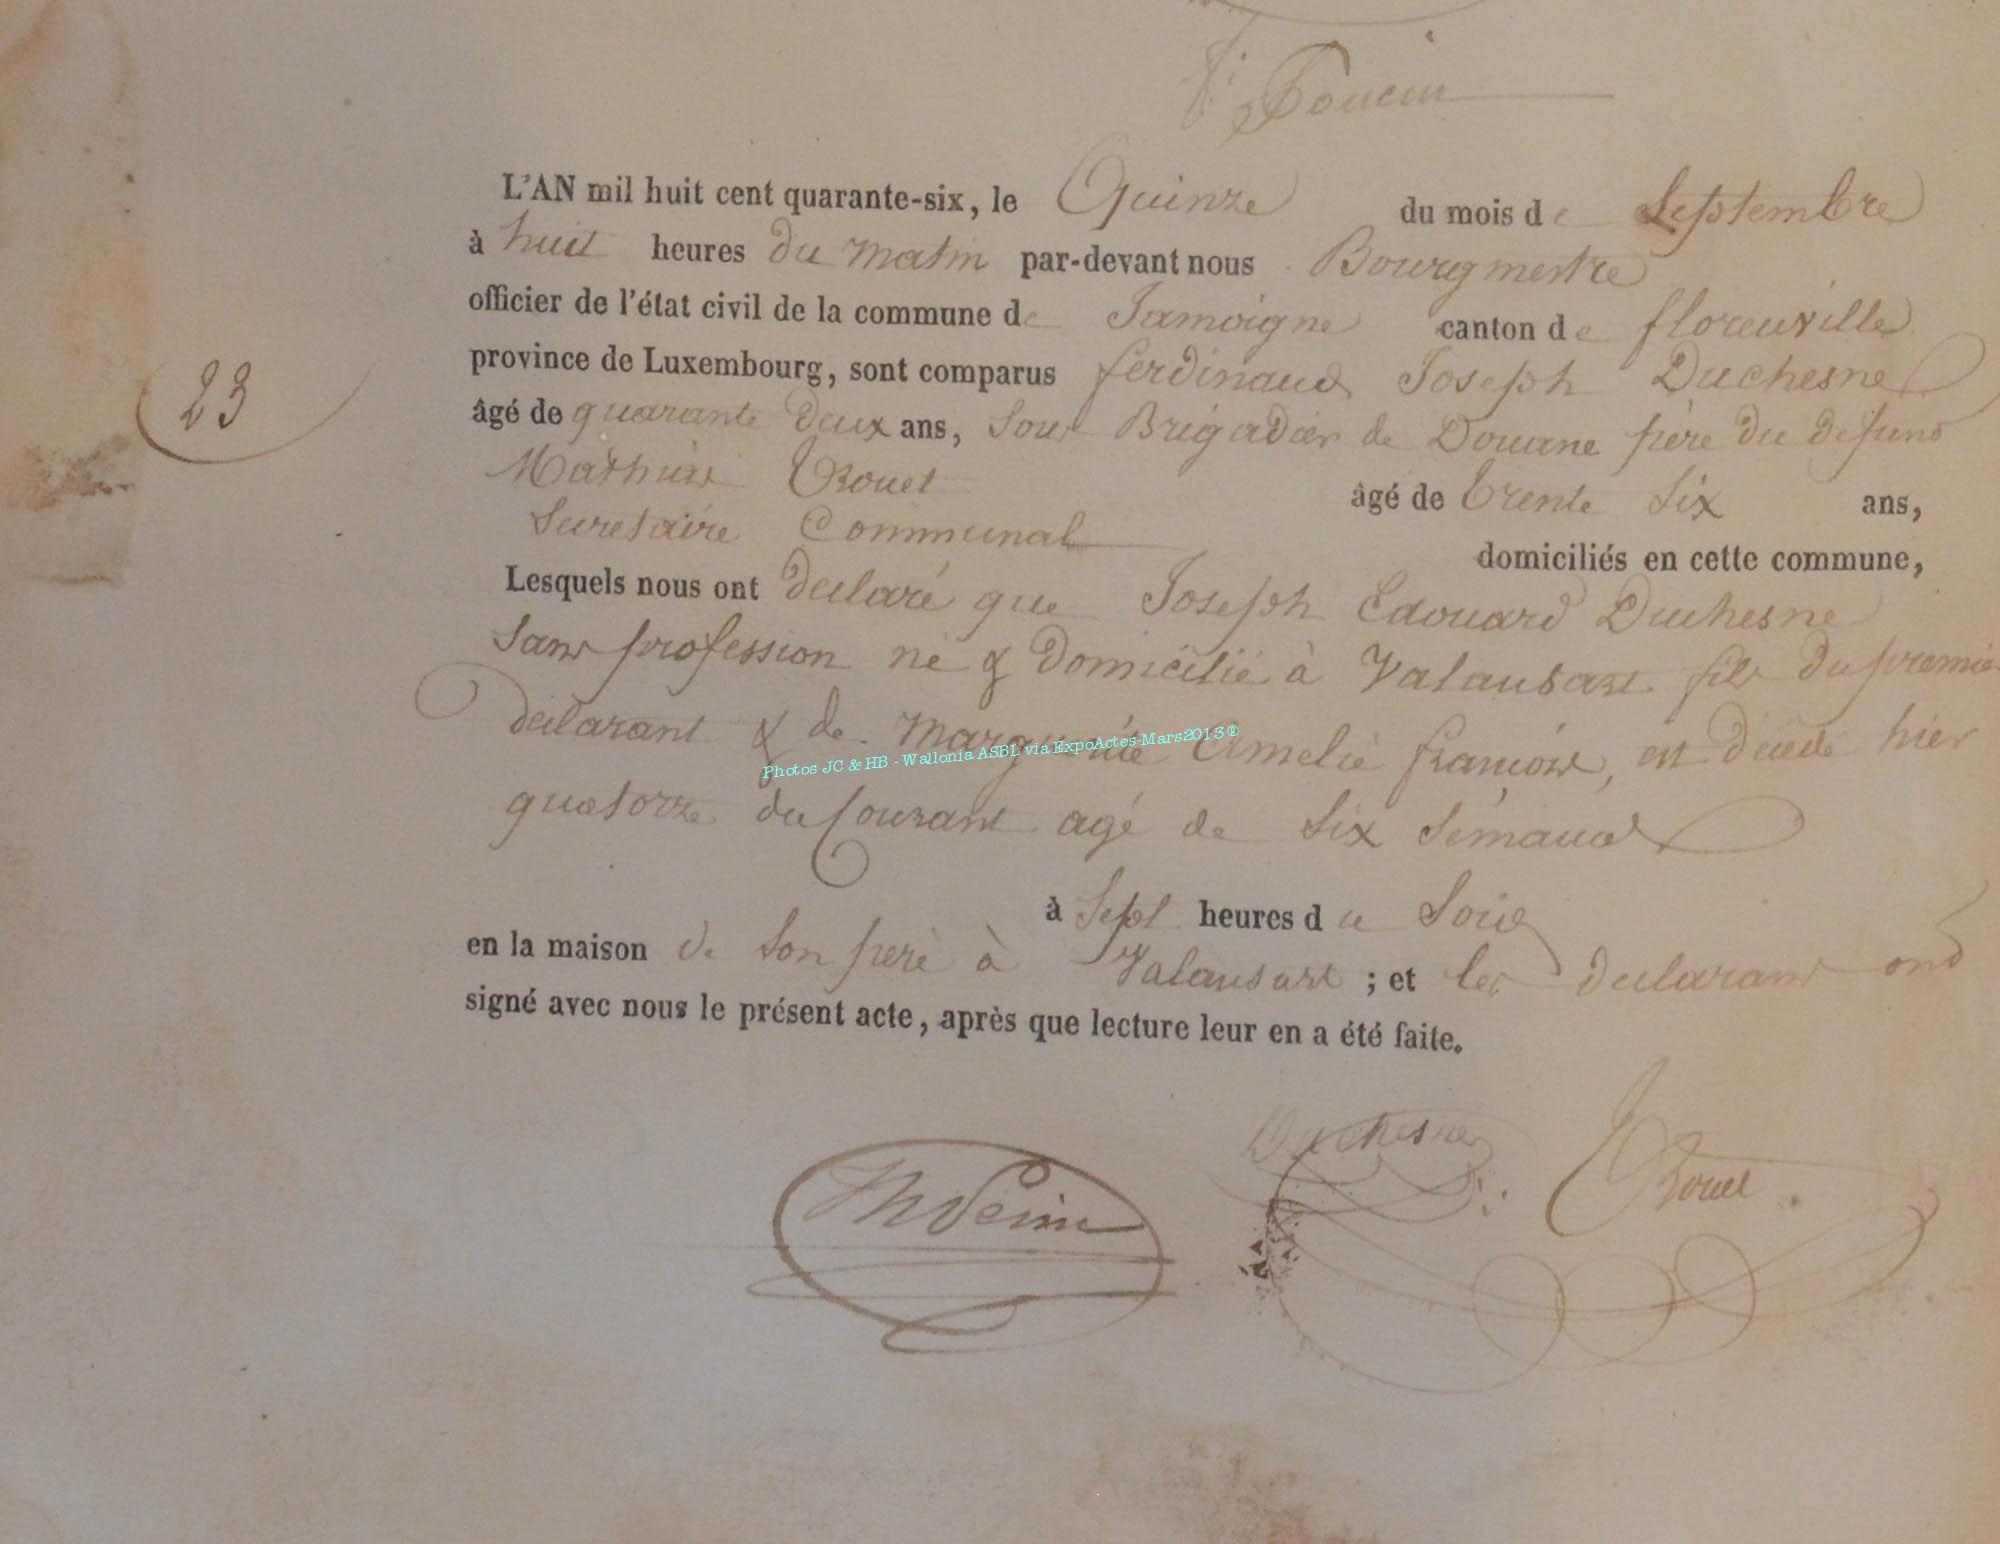 L'AN mil huit cent quarante-six, le Quinze du mois de Septembre
à huit heures du matin par-devant nous Bourgmestre
officier de l'état civil de la commune de Jamoigne canton de florenville
23
province de Luxembourg, sont comparus ferdinand Joseph Duchesne
âgé de quarante deux ans, Sous Brigadier de Douane père du defunt
Mathieu Rouet âgé de trente Six ans,
Secretaire Communal
domiciliés en cette commune,
Lesquels nous ont declaré que Joseph Edouard Duchesne
Sans profession né & domicilié à Valansart fils du premier
declarant & de Marguerite Amelie françois, est décédé hier
Photos JC & HB - Wallonia ASBL via ExpoActes-Mars2013®
quatorze du Courant agé de Six Sémaines
à Sept heures du Soir
en la maison de Son père à Valansart ; et les declarans ont
signé avec nous le présent acte, après que lecture leur en a été faite.
Duchesne Rouet